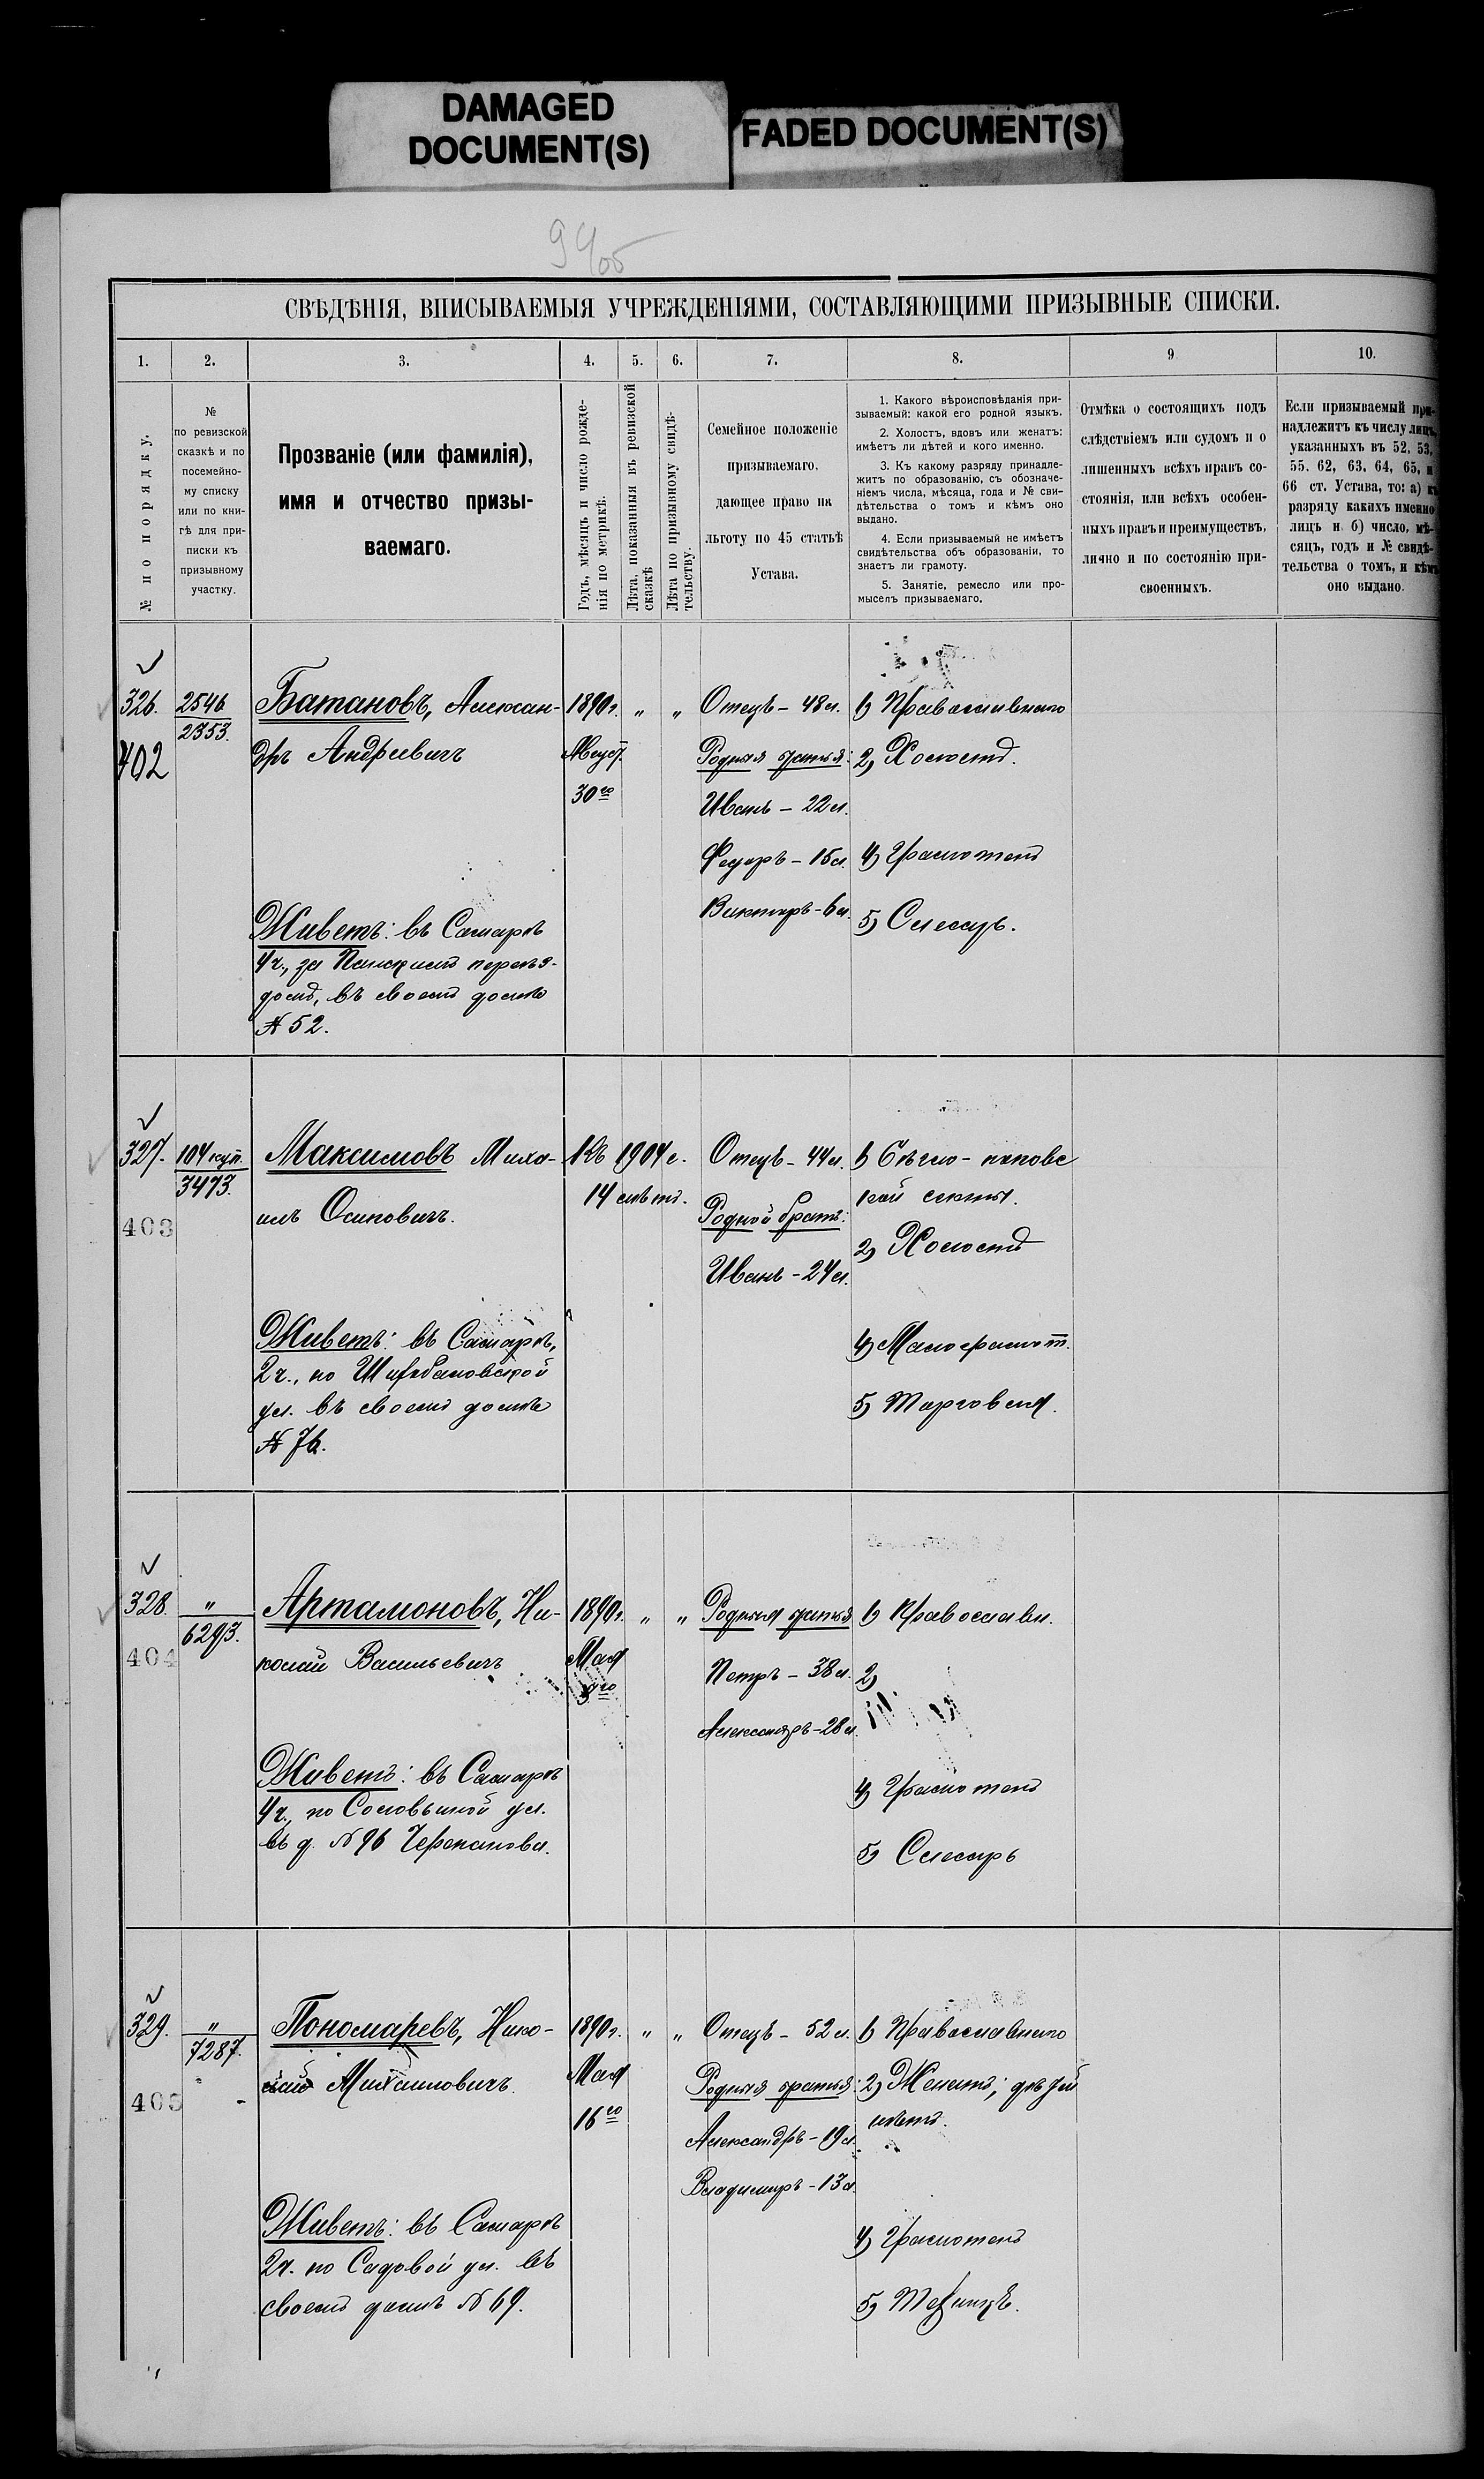 DAMAGED
DOCUMENT(S)
FADED DOCUMENT(S)
94об
СВѢДѢНІЯ, ВПИСЫВАЕМЫЯ УЧРЕЖДЕНІЯМИ, СОСТАВЛЯЮЩИМИ ПРИЗЫВНЫЕ СПИСКИ.
1. 2. 3. 4. 5. 6. 7. 8. 9 10.
№ по порядку.
№
по ревизской
сказкѣ и по
посемейно-
му списку
или по кни-
гѣ для при-
писки къ
призывному
участку.
Прозваніе (или фамилія),
имя и отчество призы-
ваемаго.
Годъ, мѣсяцъ и число рожде-
нія по метрикѣ.
Лѣта, показанныя въ ревизской
сказкѣ
Лѣта по призывному свидѣ-
тельству.
Семейное положеніе
призываемаго,
дающее право на
льготу по 45 статьѣ
Устава.
1. Какого вѣроисповѣданія при-
зываемый: какой его родной языкъ.
2. Холостъ, вдовъ или женатъ:
имѣетъ ли дѣтей и кого именно.
3. Къ какому разряду принадле-
житъ по образованію, съ обозначе-
ніемъ числа, мѣсяца, года и № сви-
дѣтельства о томъ и кѣмъ оно
выдано.
4. Если призываемый не имѣетъ
свидѣтельства объ образованіи, то
знаетъ ли грамоту.
5. Занятіе, ремесло или про-
мыселъ призываемаго.
Отмѣка о состоящихъ подъ
слѣдствіемъ или судомъ и о
лишенныхъ всѣхъ правъ со-
стоянія, или всѣхъ особен-
ныхъ правъ и преимуществъ,
лично и по состоянію при-
своенныхъ.
Если призываемый при-
надлежитъ къ числу лицъ,
указанныхъ въ 52, 53,
55, 62, 63, 64, 65, и
66 ст. Устава, то: а) къ
разряду какихъ именно
лицъ и б) число, мѣ-
сяцъ, годъ и № свидѣ-
тельства о томъ, и кѣмъ
оно выдано.
326.
402
2546
2353.
Батановъ, Алексан-
дръ Андреевичъ
Живетъ: въ Самарѣ
4ч., за переѣз-
домъ, въ своемъ домѣ
№ 52.
1890г. " "
Август.
30го
Отецъ - 48 л.
Родные братья:
Иванъ - 22 л.
Федоръ - 15 л.
Викторъ - 6 л.
1) Православнаго
2) Холостъ.
4) Грамотенъ
5) Слесарь.
327.
403
104 куп.
3473.
Максимовъ Миха-
илъ Осиповичъ.
Живетъ: въ Самарѣ,
2ч., по
ул. въ своемъ домѣ
№ 76.
Къ 1904 г.
14 лѣтъ.
Отецъ - 44 л.
Родной братъ:
Иванъ - 24 л.
1) Бѣгло-поповс
кой секты.
2) Холостъ
4) Малограмот.
5) Торговля.
328.
404
"
6293.
Артамоновъ, Ни-
колай Васильевичъ
Живетъ: въ Самарѣ
4ч., по Соловьиной ул.
въ д. № 96 Черепанова.
1890г. " "
Мая
9го
Родные братья
Петръ - 38 л.
Александръ - 28 л.
1) Православн.
2)
4) Грамотенъ
5) Слесарь
329.
405
"
7287.
Пономаревъ, Нико-
лай Михаиловичъ.
Живетъ: въ Самарѣ
2ч. по Садовой ул. въ
своемъ домѣ № 69.
1890г. " "
Мая
16го
Отецъ - 52 л.
Родные братья:
Александръ - 19 л.
Владимиръ - 13 л.
1) Православнаго
2) Женатъ; дѣтей
нѣтъ.
4) Грамотенъ
5)